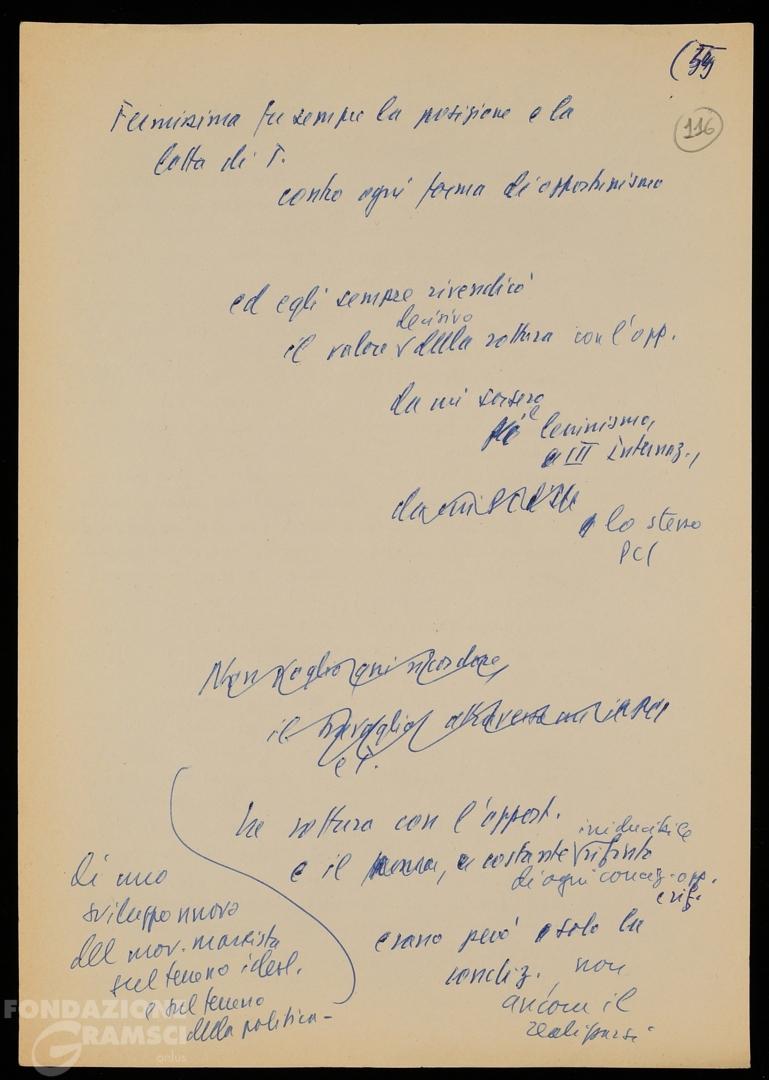 116
Fermissima fu sempre la posizione e la
lotta di T.
contro ogni forma di opportunismo
ed egli sempre rivendicò
decisivo
il valore della rottura con l'opp.
da cui sorsero
il leninismo,
la III Internaz.,
lo stesso
PCI
Non voglio qui ricordare,
il travaglio attraverso cui il PCI
e T.
La rottura con l'opport.
irriducibile
e il costante rifiuto
di ogni concez. opp.
erano però solo la
condiz. non
ancora il
realizzarsi
di uno
sviluppo nuovo
del mov. marxista
sul terreno ideol.
e sul terreno
della politica -
FONDAZIONE
GRAMSCI
onlus